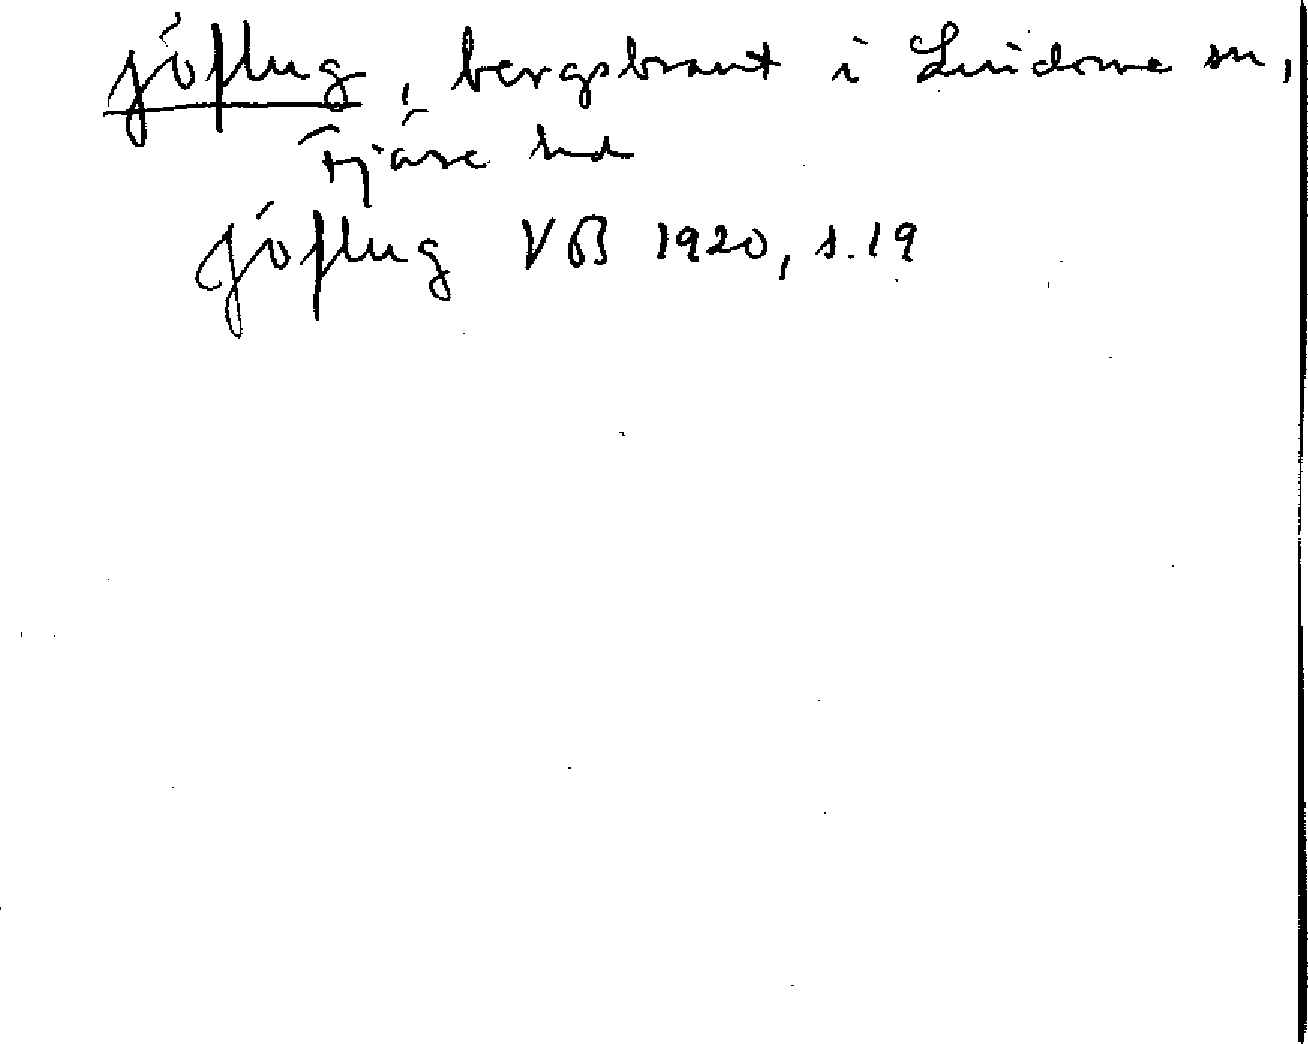 jöflug, bergsbrant i Lindome sn,
Fjäre hd
Jöflug VB 1920, s. 19